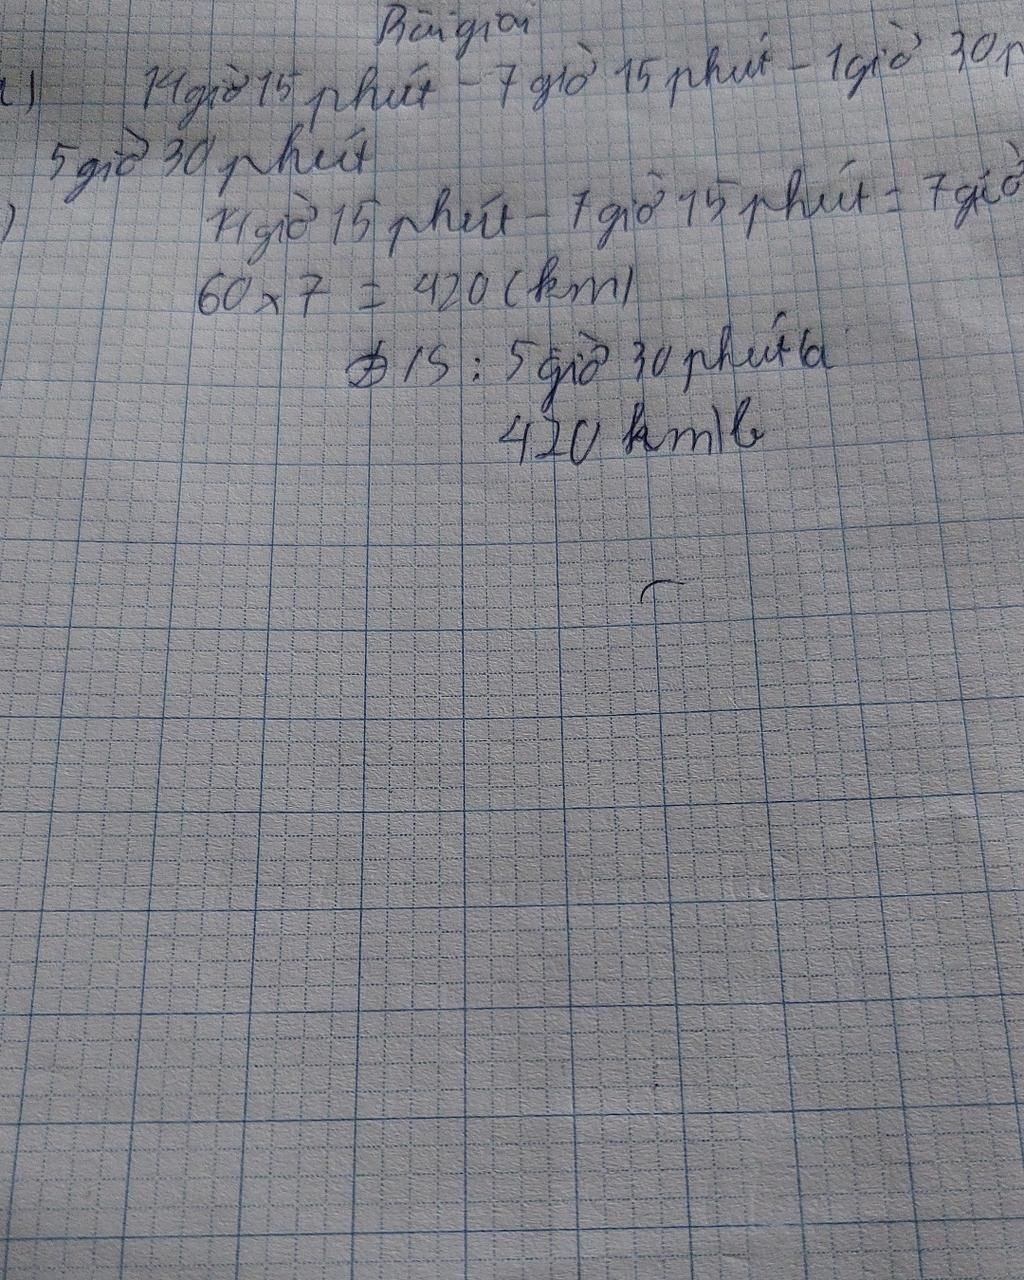 Bài giải
a) 14 giờ 15 phút - 7 giờ 15 phút - 1 giờ 30 p
5 giờ 30 phút
) 14 giờ 15 phút - 7 giờ 15 phút = 7 giờ
60 x 7 = 420 (km)
ĐS : 5 giờ 30 phút a
420 km) b